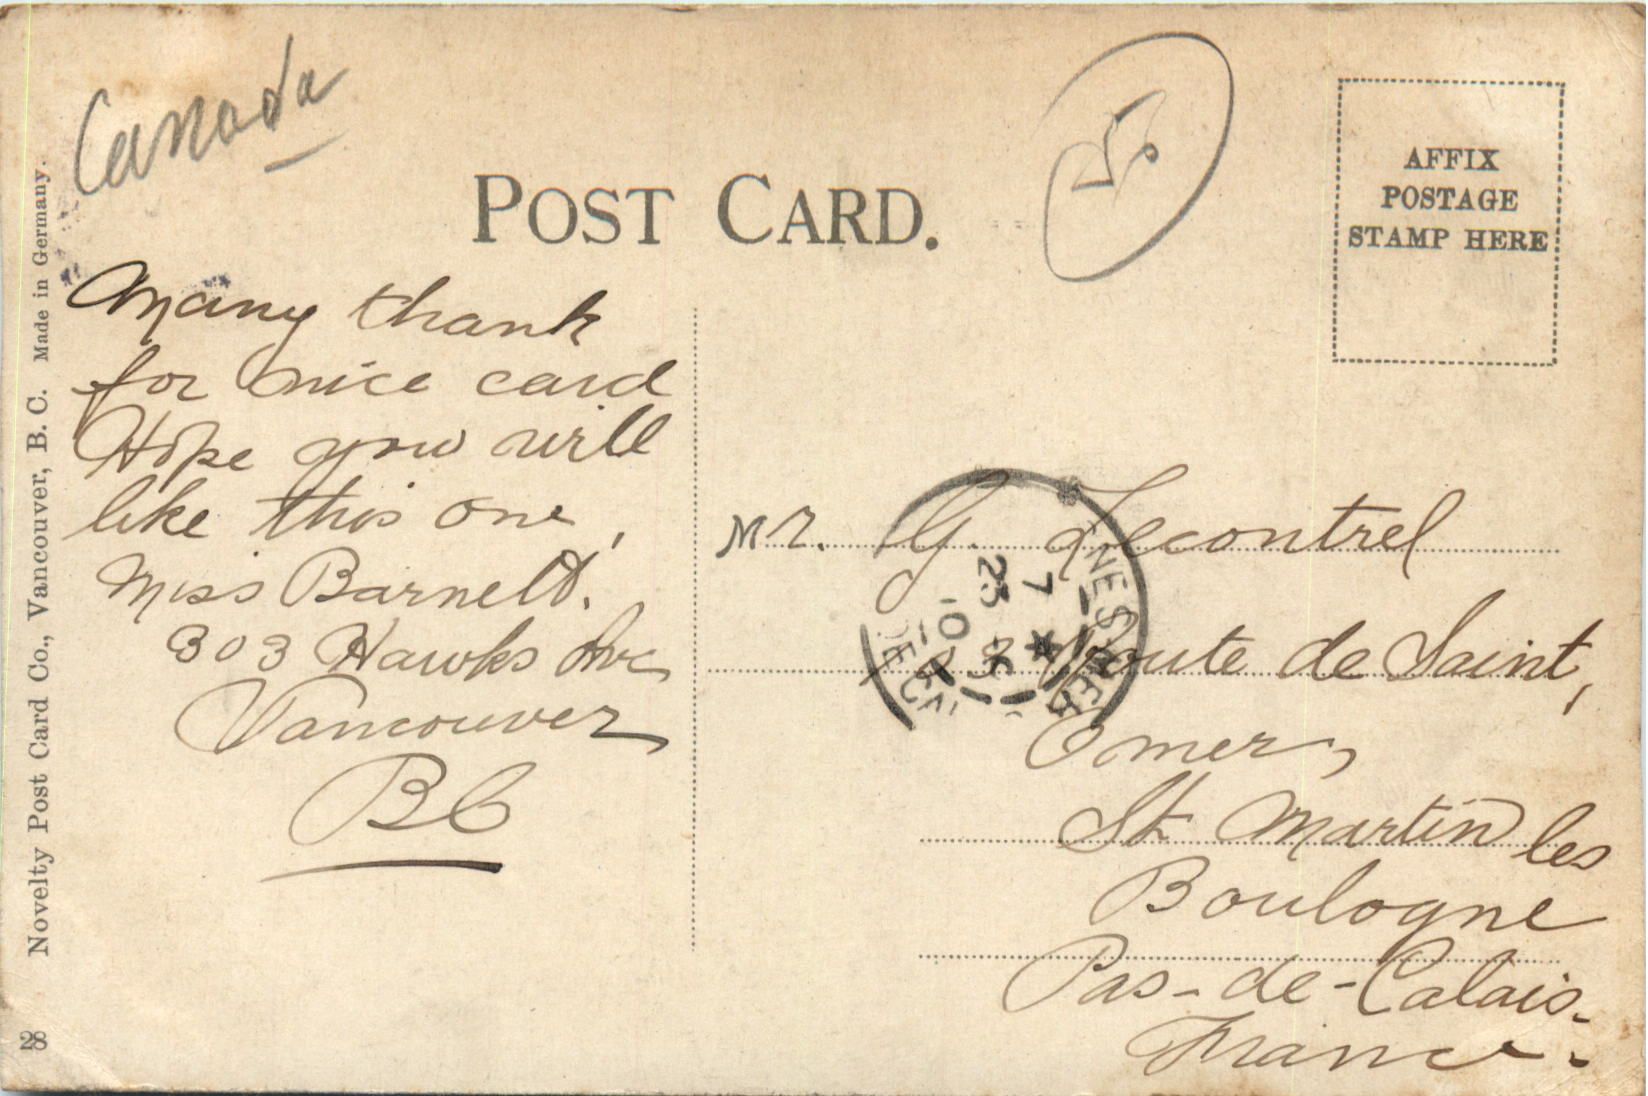 Canada
POST CARD.
AFFIX
POSTAGE
STAMP HERE
Many thank
for nice card
Hope you will
like this one,
Miss Barnett.
303 Hawks Ave
Vancouver
BC
Mr. G. Lecontrel
Route de Saint,
Omer,
St Martin les
Boulogne
Pas-de-Calais.
France.
7
23
10
Novelty Post Card Co., Vancouver, B. C. Made in Germany.
28